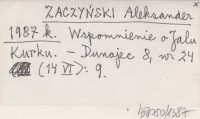 ZACZYŃSKI Aleksander
1987 k. Wspomnienie o Jalu
Kurku. – Dunajec 8, nr 24
(14 VI): 9.